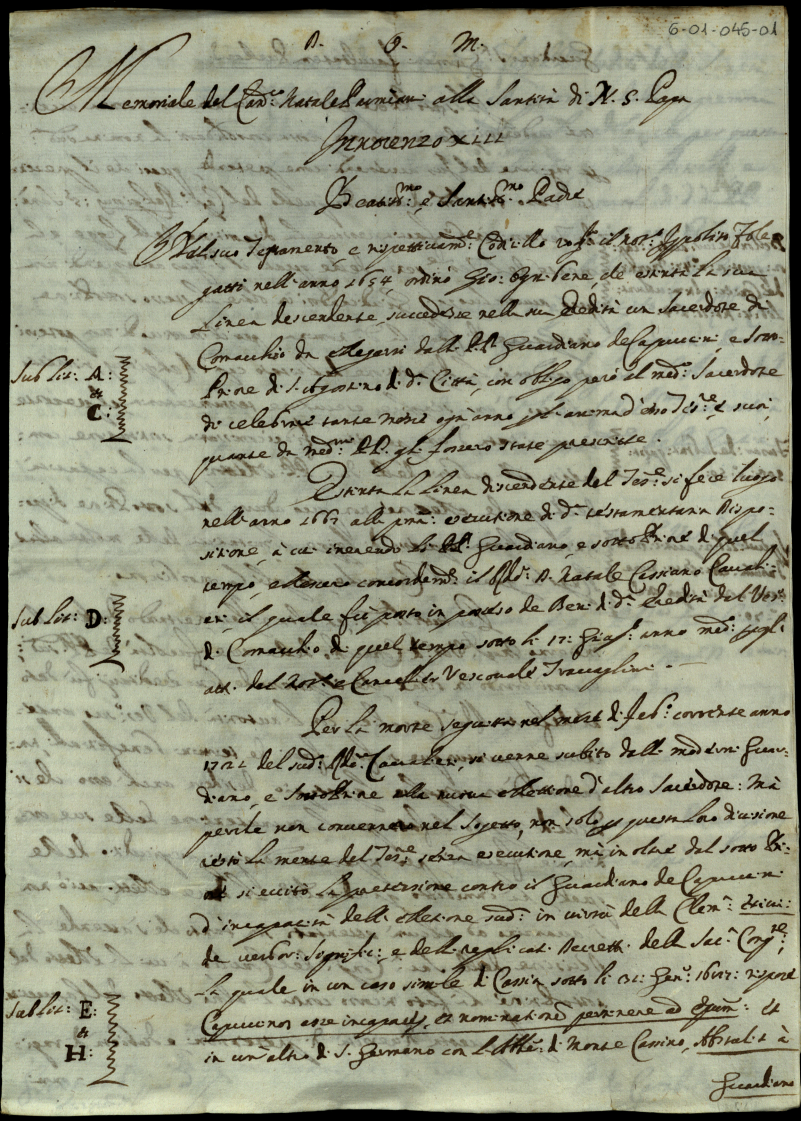 6-01-045-01
D. O. M.
Memoriale del Can.co Natale alla Santità di N. S. Papa
Innocenzo XIII
Beatiss.mo e Santiss.mo Padre
Nel suo Testamento, e rispettivam.e Codicillo rog.i il not.o Ippolito Fole
gatti nell'anno 1654, ordinò Gio: Ognibene, che estinta la sua
Linea descendente, succedesse nella sua Eredità un Sacerdote di
Comacchio da ellegersi dalli PP. Guardiano de Capuccini, e Sotto
Priore di S. Agostino di d.a Città, con obligo però al med.o Sacerdote
di celebrar tante messe ogn'anno p l'anima d'esso Tes.re, e suoi,
quante da med.mi PP. gli fossero state prescritte.
Sub Lit: A:
&
C:
Estinta la Linea discendente del Tes.re si fece luogo
nell'anno 1667 alla p.ma esecutione di d.a testamentaria Dispo-
sitione, à cui inerendo li PP. Guardiano, e sotto Priore di quel
tempo, ellessero concordem.e il R.do D. Natale Cassiano Cavali-
eri, il quale fù posto in possesso de Beni di d.a Eredità dal Ves.o
di Comacchio di quel tempo sotto li 17: anno med.o p gli
atti del Not.o e Cancell.re Vescovale Travaglini. —
Sub Lit: D:
Per la morte seguita nel mese di Feb.o corrente anno
1721 del sud.o R.do Cavalieri, si venne subito dalli moderni Guar-
diano, e Sotto Priore alla nuova ellettione d'altro Sacerdote: Mà
perche non convennero nel Sogetto, non solo p questa loro divisione
restò la mente del Tes.re senza esecutione, mà in oltre dal sotto Pri-
ore si eccitò la pretensione contro il Guardiano de Capuccini
d'incapacità dell'elletione sud.a in virtù della Clem.a Exivi:
de verbor: signific: e delli replicati Decretti della Sac.a Cong.ne,
la quale in un caso simile di Cassia sotto li 31: Gen.o rispose
Capuccinos esse incapaces, et nominationem pertinere ad Epum: Et
in un'altro di S. Germano con l'Abb.e di Monte Cassino,
Sub Lit: E:
&
H:
Guardiano